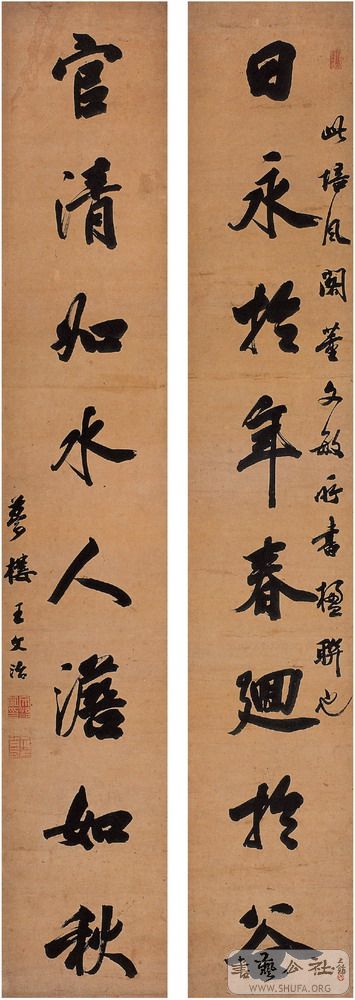 此培風閣董文敏所書楹聯也
日永於年春迴於谷
官清如水人澹如秋
夢樓王文治
書藝公社
WWW.SHUFA.ORG